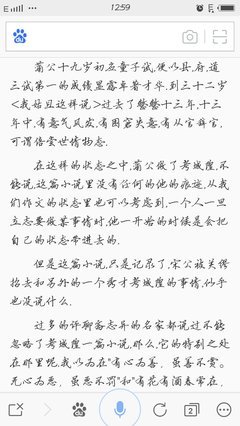 12:59
蒲公十九岁初应童子试,便以县,府,道
三试第一的成绩显露车著才华.到三十二岁
<我姑且这样说>过去了整整十三年,十三
年中,有意气风发,有困窘失意,有从容自容,
可谓倍尝世情物态.
在这样的状态之中,蒲公做了考城隍,不
能说,这篇小说里没有任何的他的痕迹,从我
们作文的状态里也可以考虑到,一个人一旦
立志要做某事情时,他一开始的时候是会把
自己的状态带进去的.
但是这篇小说,只是记录了,宋公被关停
抬去和另外的一个秀才考城隍的事情,似乎
也没说什么.
过多的评聊斋志异的名家都说过不能
忽略了考城隍一篇小说,那么,它的特别之处
在那里呢,我以为在"有心为善，虽善不赏。
无心为恶，虽恶不罚"和"有花有酒春常在,
2